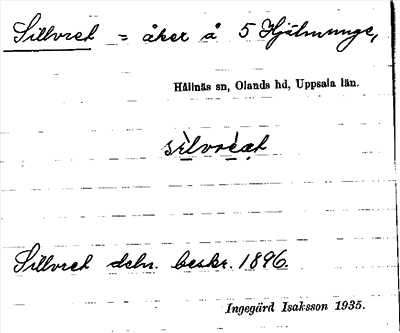 Sillvret = åker å 5 Hjälmunge,
Hållnäs sn, Olands hd, Uppsala län.
sìlvrèt
Sillvret deln. beskr. 1896
Ingegärd Isaksson 1935.